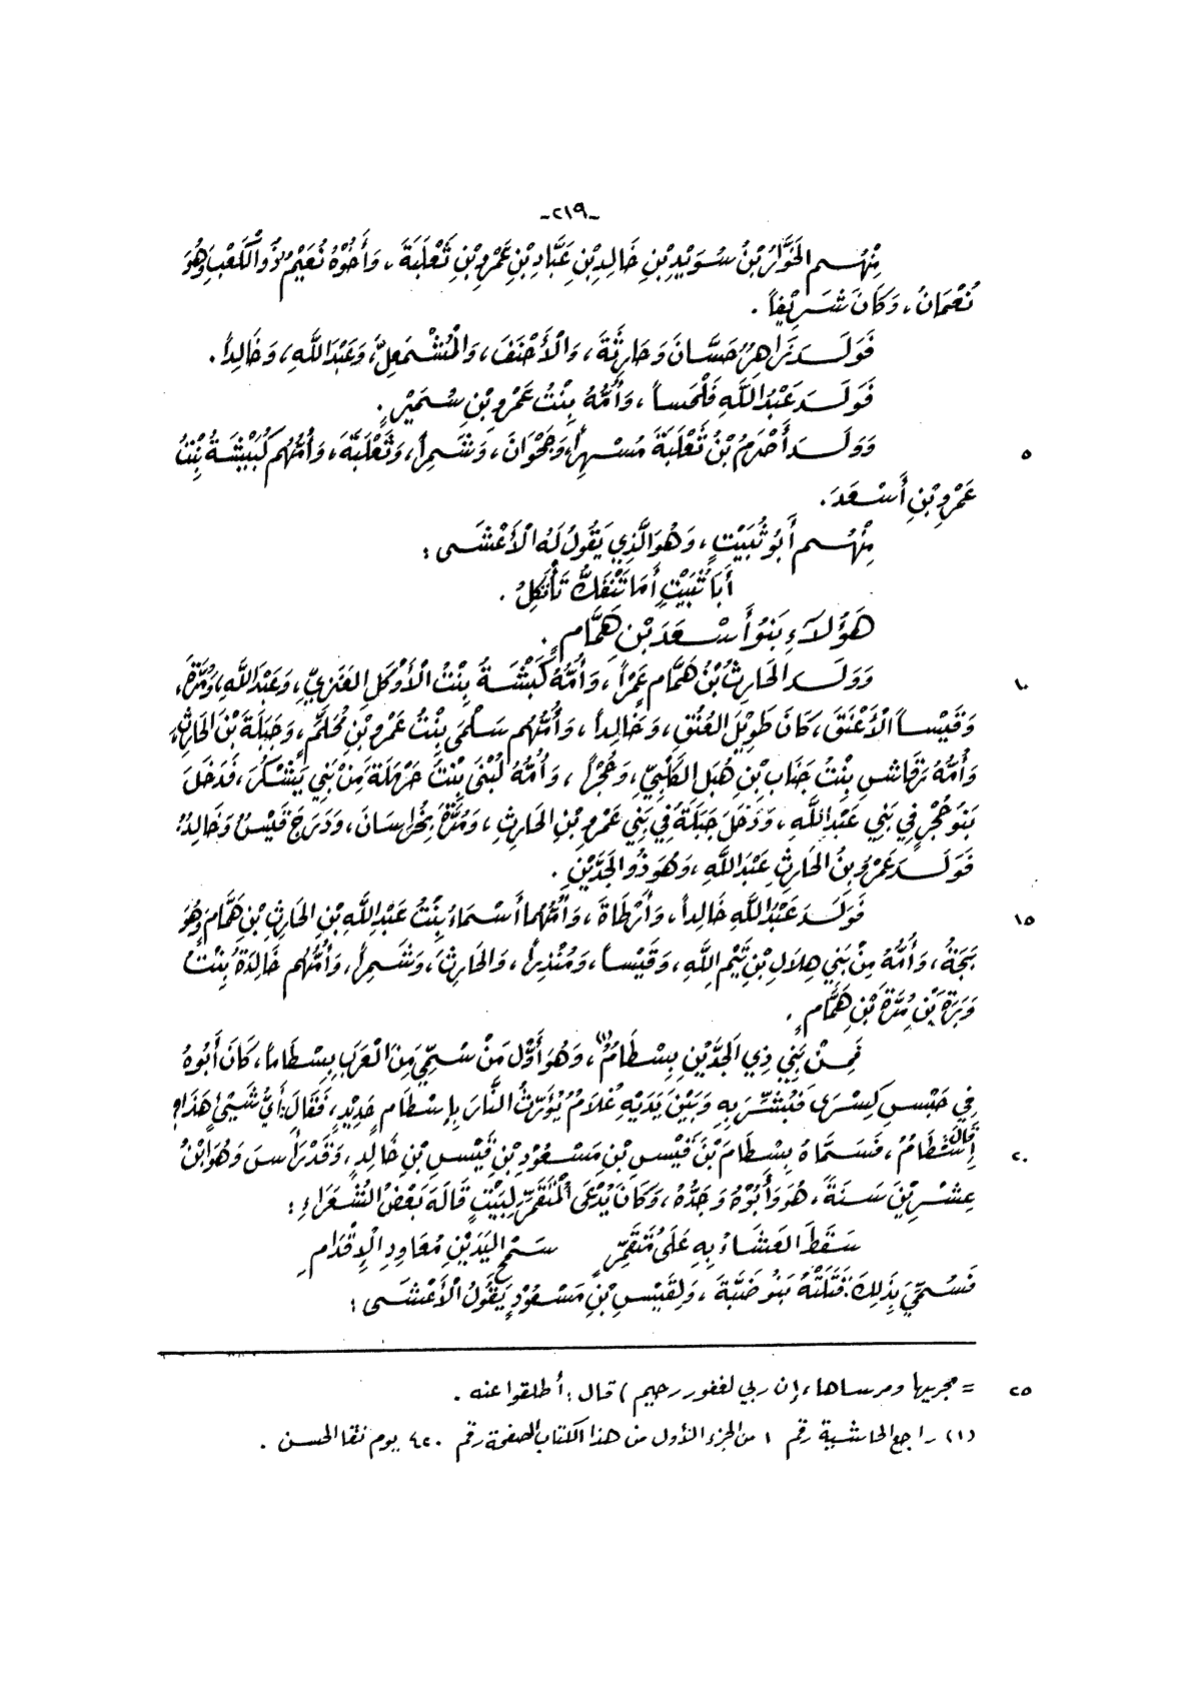 -٢١٩-
مِنْهُم الخَوَّارُ بْنُ سُوَيْدِ بْنِ خَالِدِ بْنِ عَبَّادِ بْنِ عَمْرِو بْنِ ثَعْلَبَةَ، وَأَخُوْهُ نُعَيْمٌ ذُو الْكَعْبِ وَهُوَ
نُعْمَانُ، وَكَانَ شَرِيْفاً.
فَوَلَدَ زَاهِرٌ حَسَّانَ وَحَارِثَةَ، وَالْأَحْنَفَ، وَالْمُشْمَعِلَّ، وَعَبْدَ اللَّهِ، وَخَالِداً.
فَوَلَدَ عَبْدُ اللَّهِ فَلْحَساً، وَأُمُّهُ بِنْتُ عَمْرِو بْنِ سُمَيْرٍ.
٥ وَوَلَدَ أَصْرَمُ بْنُ ثَعْلَبَةَ مُسْهِراً، وَجَحْوَانَ، وَشَمِراً، وَثَعْلَبَةَ، وَأُمُّهُم كُبَيْشَةُ بِنْتُ
عَمْرِو بْنِ أَسْعَدَ.
مِنْهُم أَبُو ثُبَيْتٍ، وَهُوَ الَّذِي يَقُولُ لَهُ الْأَعْشَى:
أَبَا ثُبَيْتٍ أَمَا تَنْفَكُّ تَأْتَكِلُ.
هَؤُلَاءِ بَنُو أَسْعَدَ بْنِ هَمَّامٍ.
١٠ وَوَلَدَ الحَارِثُ بْنُ هَمَّامٍ عَمْراً، وَأُمُّهُ كَبْشَةُ بِنْتُ الْأَوْكَلِ العَنَزِيِّ، وَعَبْدَ اللَّهِ، وَمُرَّةَ،
وَقَيْساً الْأَعْنَقَ، كَانَ طَوِيْلَ العُنُقِ، وَخَالِداً، وَأُمُّهُم سَلْمَى بِنْتُ عَمْرِو بْنِ مُحَلِّمٍ، وَجَبَلَةَ بْنَ الحَارِثِ،
وَأُمُّهُ رَقَاشِ بِنْتُ جَنَابِ بْنِ هُبَلِ الكَلْبِيِّ، وَحُجْراً، وَأُمُّهُ لُبْنَى بِنْتُ حَرْمَلَةَ مِنْ بَنِي يَشْكُرَ، فَدَخَلَ
بَنُو حُجْرٍ فِي بَنِي عَبْدِ اللَّهِ، وَدَخَلَ جَبَلَةُ فِي بَنِي عَمْرِو بْنِ الحَارِثِ، وَمُرَّةُ بِخُرَاسَانَ، وَدَرَجَ قَيْسٌ وَخَالِدٌ.
فَوَلَدَ عَمْرُو بْنُ الحَارِثِ عَبْدَ اللَّهِ، وَهُوَ ذُو الجَدَّيْنِ.
١٥ فَوَلَدَ عَبْدُ اللَّهِ خَالِداً، وَأَرْطَاةَ، وَأُمُّهُمَا أَسْمَاءُ بِنْتُ عَبْدِ اللَّهِ بْنِ الحَارِثِ بْنِ هَمَّامَ، وَهُوَ
بَجَّةُ، وَأُمُّهُ مِنْ بَنِي هِلَالِ بْنِ تَيْمِ اللَّهِ، وَقَيْساً، وَمُنْذِراً، وَالحَارِثَ، وَشَمِراً، وَأُمُّهُم خَالِدَةُ بِنْتُ
وَبَرَةَ بْنِ مُرَّةَ بْنِ هَمَّامٍ.
فَمِنْ بَنِي ذِي الجَدَّيْنِ بِسْطَامٌ(١)، وَهُوَ أَوَّلُ مَنْ سُمِّيَ مِنَ الْعَرَبِ بِسْطَاماً، كَانَ أَبُوهُ
فِي حَبْسِ كِسْرَى فَبُشِّرَ بِهِ وَبَيْنَ يَدَيْهِ غُلَامٌ يُؤَرِّثُ النَّارَ بِإِسْطَامِ حَدِيْدٍ، فَقَالَ: أَيُّ شَيْئٍ هَذَا؟
٢٠ قَالَ: إِسْطَامٌ، فَسَمَّاهُ بِسْطَامَ بْنَ قَيْسِ بْنِ مَسْعُوْدِ بْنِ قَيْسِ بْنِ خَالِدٍ، وَقَدْ رَأَسَ وَهُوَ ابْنُ
عِشْرِيْنَ سَنَةً، هُوَ وَأَبُوْهُ وَجَدُّهُ، وَكَانَ يُدْعَى الْمُتَقَمِّرَ لِبَيْتٍ قَالَهُ بَعْضُ الشُّعَرَاءِ:
سَقَطَ العَشَاءُ بِهِ عَلَى مُتَقَمِّرٍ سَمْحِ اليَدَيْنِ مُعَاوِدِ الْإِقْدَامِ
فَسُمِّيَ بِذَلِكَ، قَتَلَتْهُ بَنُو ضَبَّةَ، وَلِقَيْسِ بْنِ مَسْعُوْدٍ يَقُوْلُ الْأَعْشَى:
٢٥ = مجريها ومرساها، إن ربي لغفور رحيم) قال: أطلقوا عنه.
(١) راجع الحاشية رقم ١ من الجزء الأول من هذا الكتاب الصفحة رقم ٤٢٠ يوم نقا الحسن.